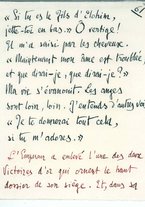 61
« Si tu es le fils d'Elohim,
jette-toi en bas. » O vertige !
Il m'a saisi par les cheveux.
« Maintenant mon âme est troublée,
et que dirai-je, que dirai-je ? »
Ma vie s'évanouit. Les anges
sont loin, loin. J'entends d'autres voix
« Je te donnerai tout cela,
si tu m'adores. »
L'Empereur a enlevé l'une des deux
Victoires d'or qui ornent le haut
dossier de son siège. Et, dans sa